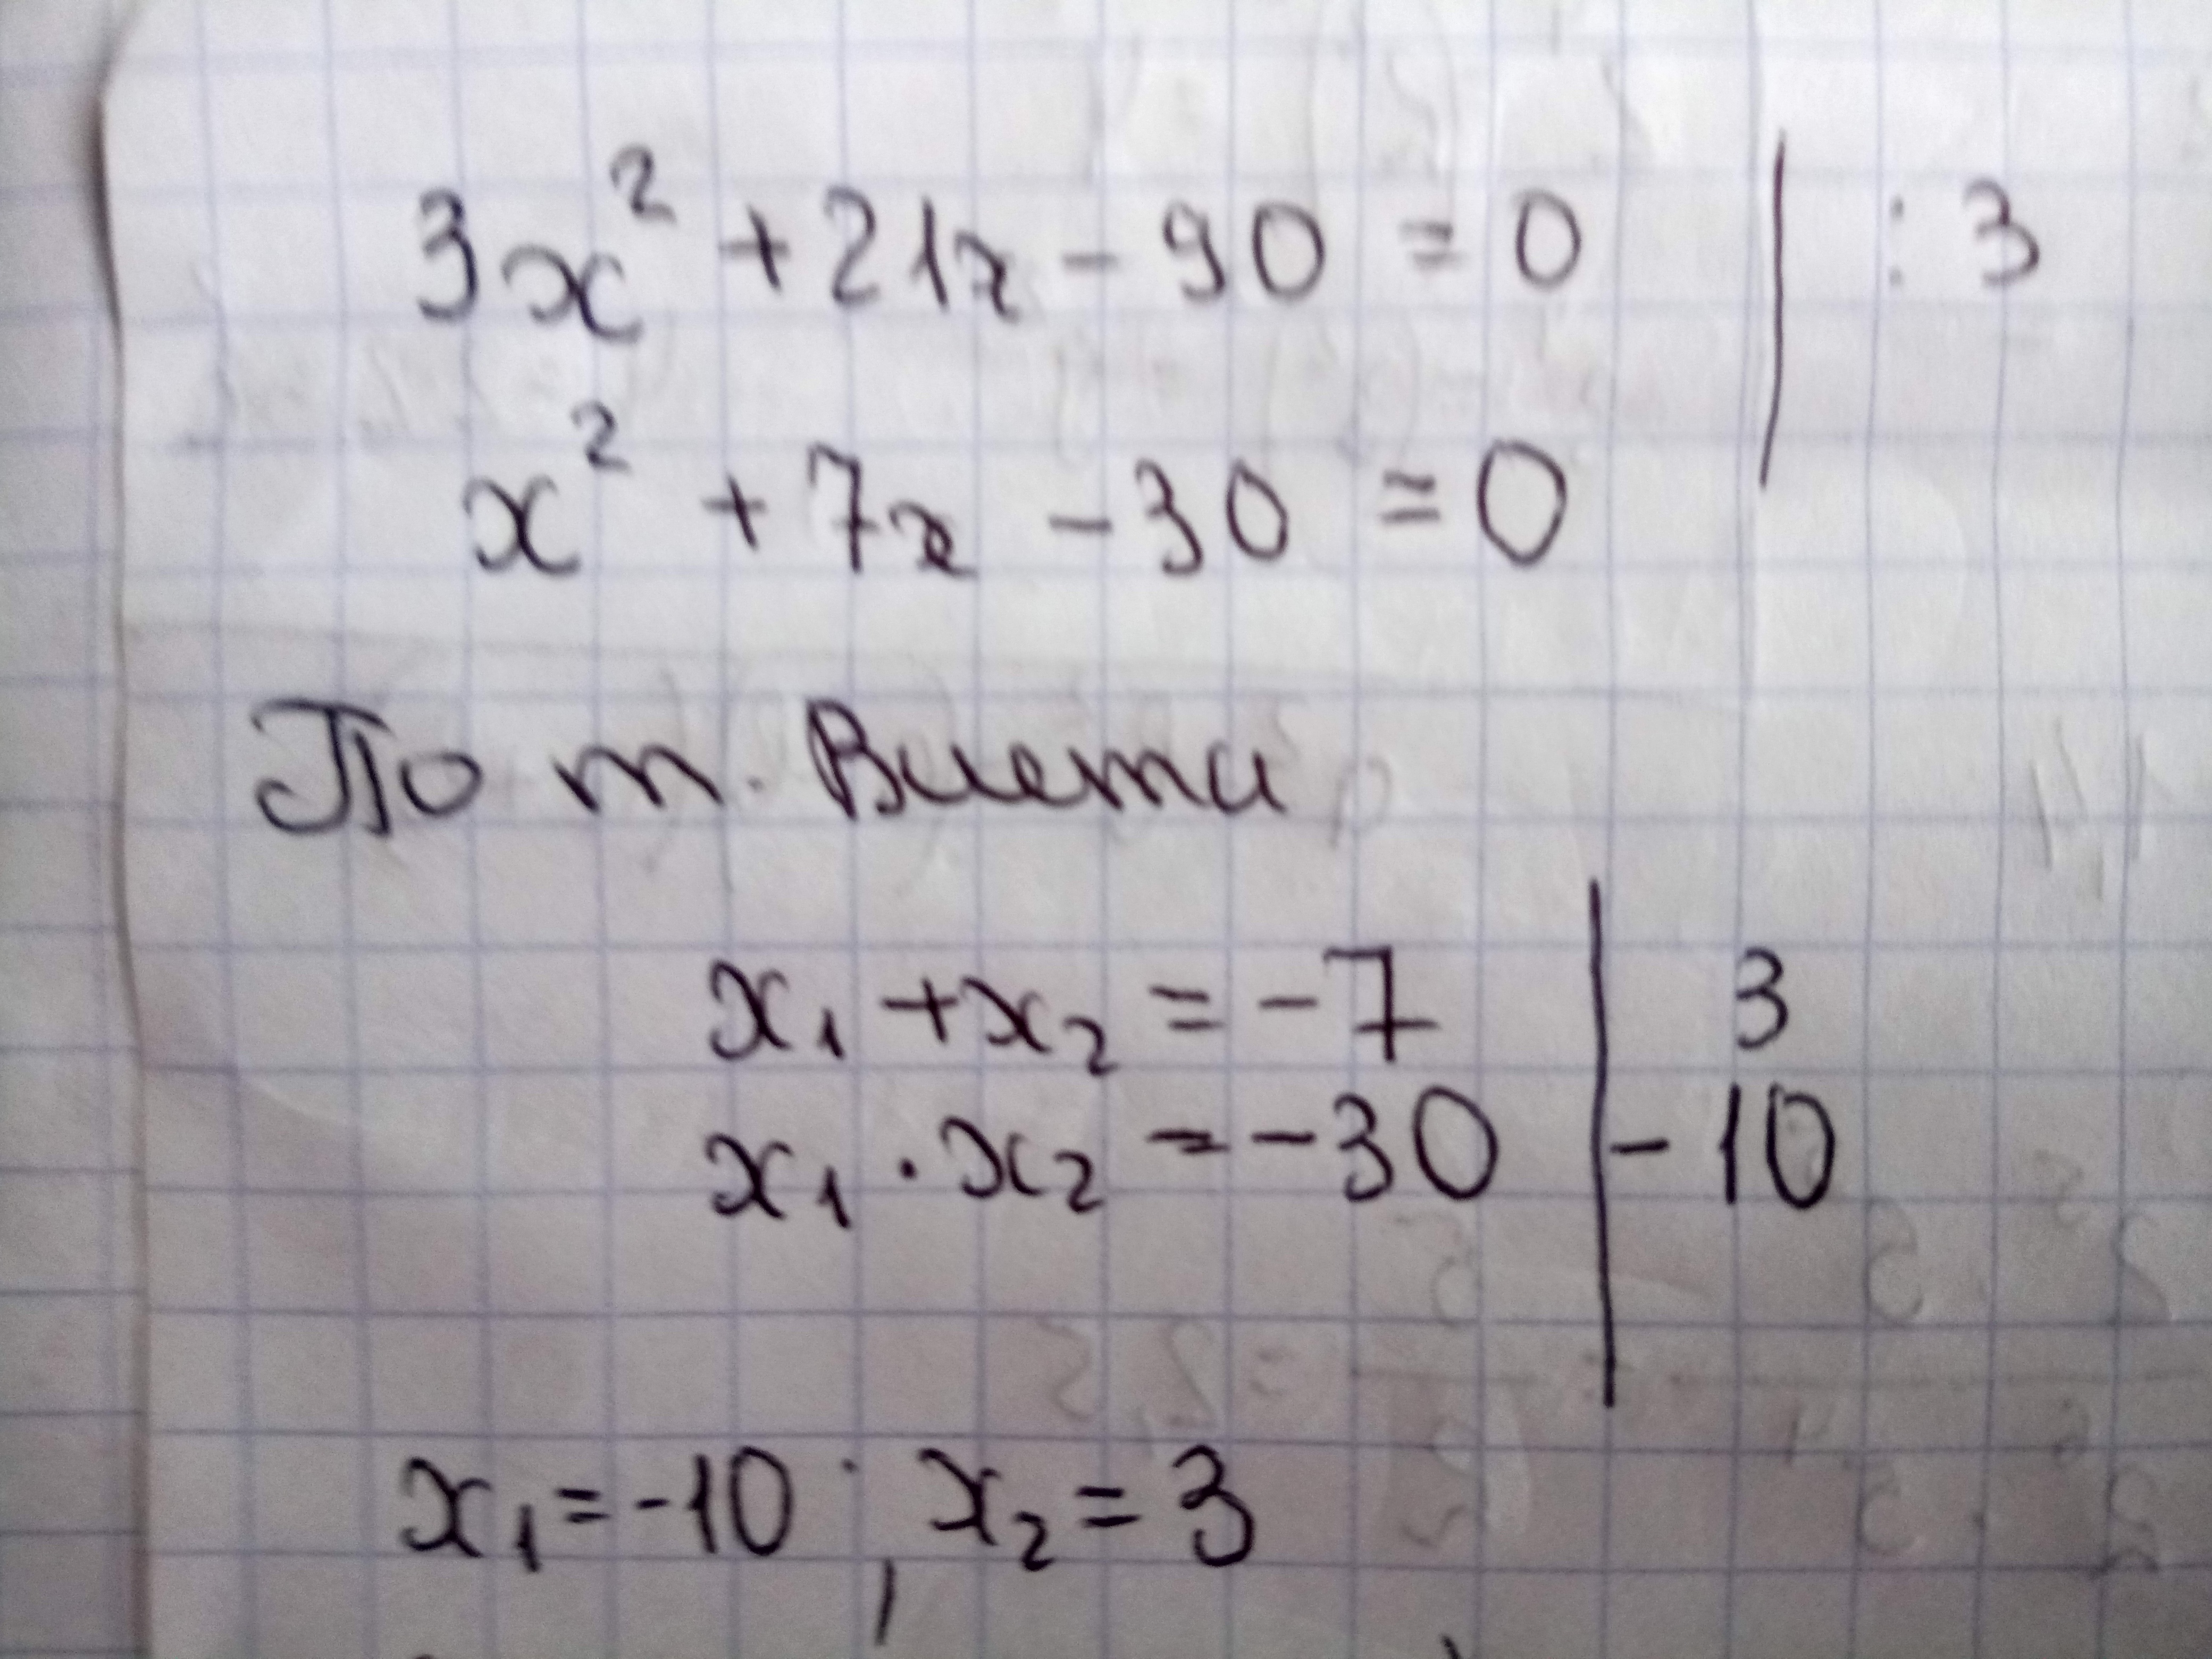 3x² + 21x - 90 = 0 | : 3
x² + 7x - 30 = 0
По т. Виета
x₁ + x₂ = -7 | 3
x₁ · x₂ = -30 | -10
x₁ = -10 ; x₂ = 3